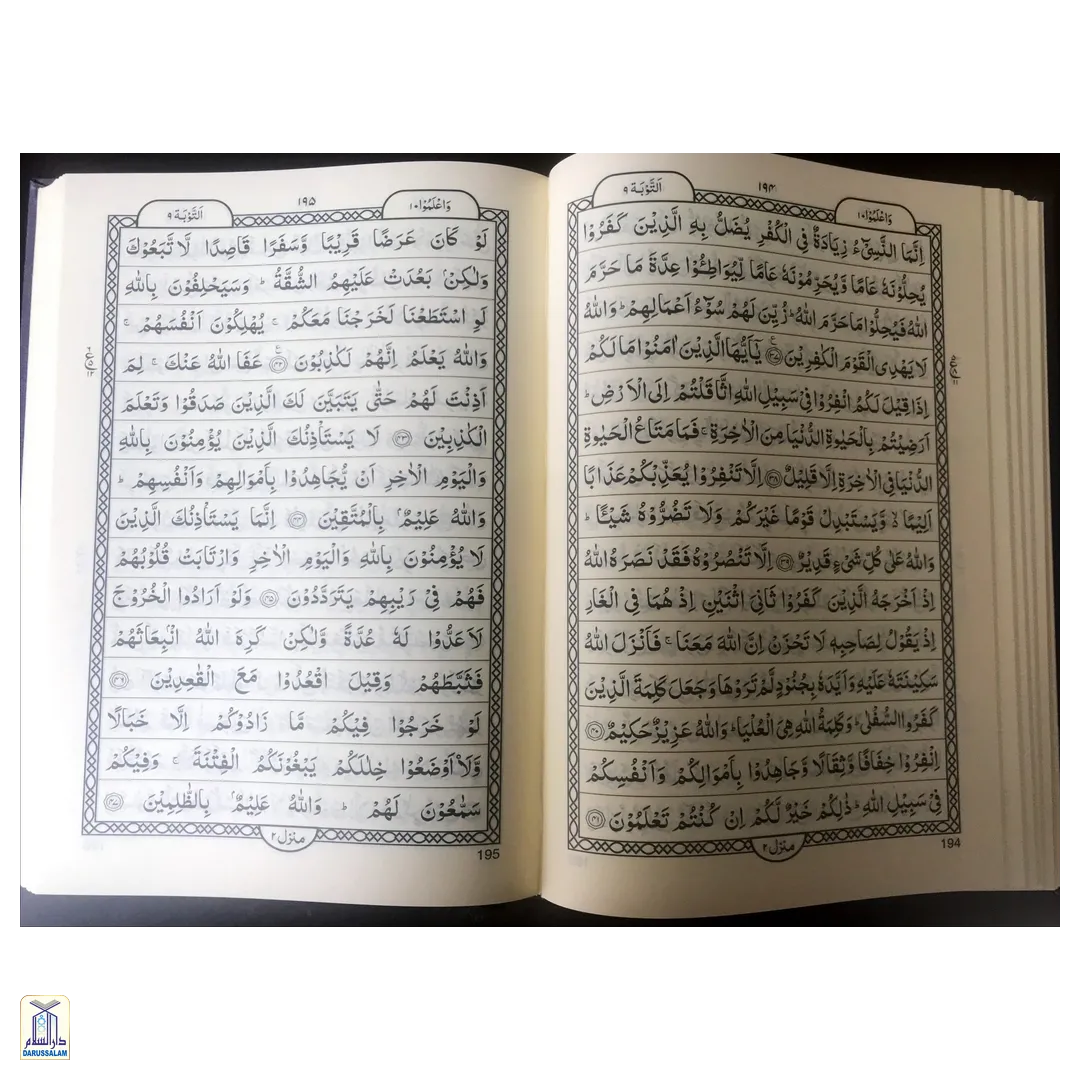 اَلتَّوْبَة ٩
١٩٤
وَاعْلَمُوْٓا ١٠
اِنَّمَا النَّسِيْٓءُ زِيَادَةٌ فِي الْكُفْرِ يُضَلُّ بِهِ الَّذِيْنَ كَفَرُوْا
يُحِلُّوْنَهٗ عَامًا وَّيُحَرِّمُوْنَهٗ عَامًا لِّيُوَاطِـُٔوْا عِدَّةَ مَا حَرَّمَ
اللّٰهُ فَيُحِلُّوْا مَا حَرَّمَ اللّٰهُ ؕ زُيِّنَ لَهُمْ سُوْٓءُ اَعْمَالِهِمْ ؕ وَاللّٰهُ
لَا يَهْدِى الْقَوْمَ الْكٰفِرِيْنَ ۝٣٧ يٰٓاَيُّهَا الَّذِيْنَ اٰمَنُوْا مَا لَكُمْ
اِذَا قِيْلَ لَكُمُ انْفِرُوْا فِيْ سَبِيْلِ اللّٰهِ اثَّاقَلْتُمْ اِلَى الْاَرْضِ ؕ
اَرَضِيْتُمْ بِالْحَيٰوةِ الدُّنْيَا مِنَ الْاٰخِرَةِ ۚ فَمَا مَتَاعُ الْحَيٰوةِ
الدُّنْيَا فِي الْاٰخِرَةِ اِلَّا قَلِيْلٌ ۝٣٨ اِلَّا تَنْفِرُوْا يُعَذِّبْكُمْ عَذَابًا
اَلِيْمًا ۙ وَّيَسْتَبْدِلْ قَوْمًا غَيْرَكُمْ وَلَا تَضُرُّوْهُ شَيْـًٔا ؕ
وَاللّٰهُ عَلٰى كُلِّ شَيْءٍ قَدِيْرٌ ۝٣٩ اِلَّا تَنْصُرُوْهُ فَقَدْ نَصَرَهُ اللّٰهُ
اِذْ اَخْرَجَهُ الَّذِيْنَ كَفَرُوْا ثَانِيَ اثْنَيْنِ اِذْ هُمَا فِي الْغَارِ
اِذْ يَقُوْلُ لِصَاحِبِهٖ لَا تَحْزَنْ اِنَّ اللّٰهَ مَعَنَا ۚ فَاَنْزَلَ اللّٰهُ
سَكِيْنَتَهٗ عَلَيْهِ وَاَيَّدَهٗ بِجُنُوْدٍ لَّمْ تَرَوْهَا وَجَعَلَ كَلِمَةَ الَّذِيْنَ
كَفَرُوا السُّفْلٰى ؕ وَكَلِمَةُ اللّٰهِ هِيَ الْعُلْيَا ؕ وَاللّٰهُ عَزِيْزٌ حَكِيْمٌ ۝٤٠
اِنْفِرُوْا خِفَافًا وَّثِقَالًا وَّجَاهِدُوْا بِاَمْوَالِكُمْ وَاَنْفُسِكُمْ
فِيْ سَبِيْلِ اللّٰهِ ؕ ذٰلِكُمْ خَيْرٌ لَّكُمْ اِنْ كُنْتُمْ تَعْلَمُوْنَ ۝٤١
منزل ٢
194
اَلتَّوْبَة ٩
١٩٥
وَاعْلَمُوْٓا ١٠
لَوْ كَانَ عَرَضًا قَرِيْبًا وَّسَفَرًا قَاصِدًا لَّا تَّبَعُوْكَ
وَلٰكِنْۢ بَعُدَتْ عَلَيْهِمُ الشُّقَّةُ ؕ وَسَيَحْلِفُوْنَ بِاللّٰهِ
لَوِ اسْتَطَعْنَا لَخَرَجْنَا مَعَكُمْ ۚ يُهْلِكُوْنَ اَنْفُسَهُمْ ۚ
وَاللّٰهُ يَعْلَمُ اِنَّهُمْ لَكٰذِبُوْنَ ۝٤٢ عَفَا اللّٰهُ عَنْكَ ۚ لِمَ
اَذِنْتَ لَهُمْ حَتّٰى يَتَبَيَّنَ لَكَ الَّذِيْنَ صَدَقُوْا وَتَعْلَمَ
الْكٰذِبِيْنَ ۝٤٣ لَا يَسْتَاْذِنُكَ الَّذِيْنَ يُؤْمِنُوْنَ بِاللّٰهِ
وَالْيَوْمِ الْاٰخِرِ اَنْ يُّجَاهِدُوْا بِاَمْوَالِهِمْ وَاَنْفُسِهِمْ ؕ
وَاللّٰهُ عَلِيْمٌۢ بِالْمُتَّقِيْنَ ۝٤٤ اِنَّمَا يَسْتَاْذِنُكَ الَّذِيْنَ
لَا يُؤْمِنُوْنَ بِاللّٰهِ وَالْيَوْمِ الْاٰخِرِ وَارْتَابَتْ قُلُوْبُهُمْ
فَهُمْ فِيْ رَيْبِهِمْ يَتَرَدَّدُوْنَ ۝٤٥ وَلَوْ اَرَادُوا الْخُرُوْجَ
لَاَعَدُّوْا لَهٗ عُدَّةً وَّلٰكِنْ كَرِهَ اللّٰهُ انْۢبِعَاثَهُمْ
فَثَبَّطَهُمْ وَقِيْلَ اقْعُدُوْا مَعَ الْقٰعِدِيْنَ ۝٤٦
لَوْ خَرَجُوْا فِيْكُمْ مَّا زَادُوْكُمْ اِلَّا خَبَالًا
وَّلَا۟اَوْضَعُوْا خِلٰلَكُمْ يَبْغُوْنَكُمُ الْفِتْنَةَ ۚ وَفِيْكُمْ
سَمّٰعُوْنَ لَهُمْ ؕ وَاللّٰهُ عَلِيْمٌۢ بِالظّٰلِمِيْنَ ۝٤٧
منزل ٢
195
دارالسلام
DARUSSALAM